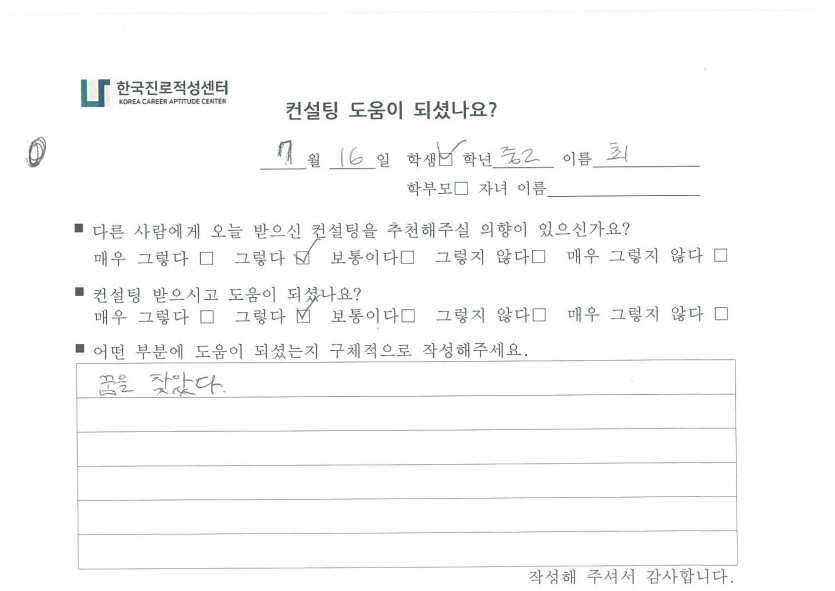 한국진로적성센터
KOREA CAREER APTITUDE CENTER
컨설팅 도움이 되셨나요?
7 월 16 일 학생☑ 학년 중2 이름 최
학부모□ 자녀 이름
■ 다른 사람에게 오늘 받으신 컨설팅을 추천해주실 의향이 있으신가요?
매우 그렇다 □ 그렇다 ☑ 보통이다□ 그렇지 않다□ 매우 그렇지 않다 □
■ 컨설팅 받으시고 도움이 되셨나요?
매우 그렇다 □ 그렇다 ☑ 보통이다□ 그렇지 않다□ 매우 그렇지 않다 □
■ 어떤 부분에 도움이 되셨는지 구체적으로 작성해주세요.
꿈을 찾았다.
작성해 주셔서 감사합니다.